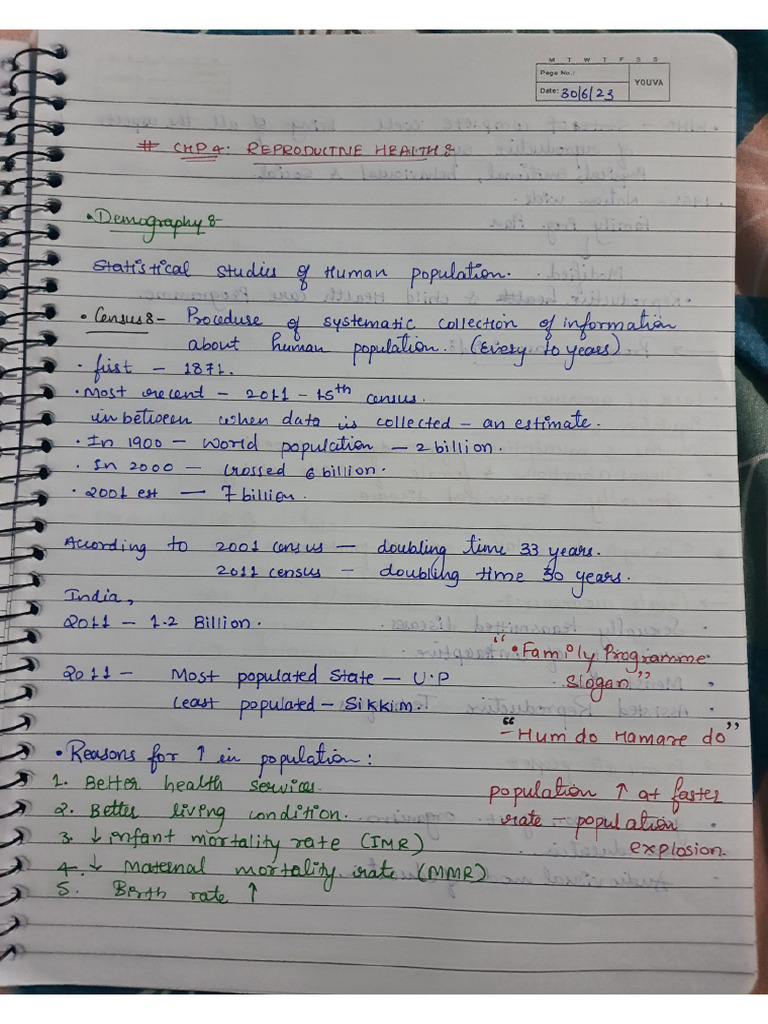 M T W T F S S
Page No.:
Date: 30/6/23
YOUVA
# CHP 4: REPRODUCTIVE HEALTH :-
• Demography :-
Statistical studies of Human population.
• Census :- Procedure of systematic collection of information
about human population. (Every 10 years)
• first - 1871.
• Most recent - 2011 - 15th census.
in between when data is collected - an estimate.
• In 1900 - World population - 2 billion.
• In 2000 - crossed 6 billion.
• 2001 est - 7 billion.
According to 2001 census - doubling time 33 years.
2011 census - doubling time 30 years.
India,
2011 - 1.2 Billion.
2011 - Most populated State - U.P
Least populated - Sikkim.
"• Family Programme
Slogan"
"- Hum do Hamare do"
• Reasons for ↑ in population:
1. Better health services.
2. Better living condition.
3. ↓ infant mortality rate (IMR)
4. ↓ Maternal mortality rate (MMR)
5. Birth rate ↑
population ↑ at faster
rate - population
explosion.